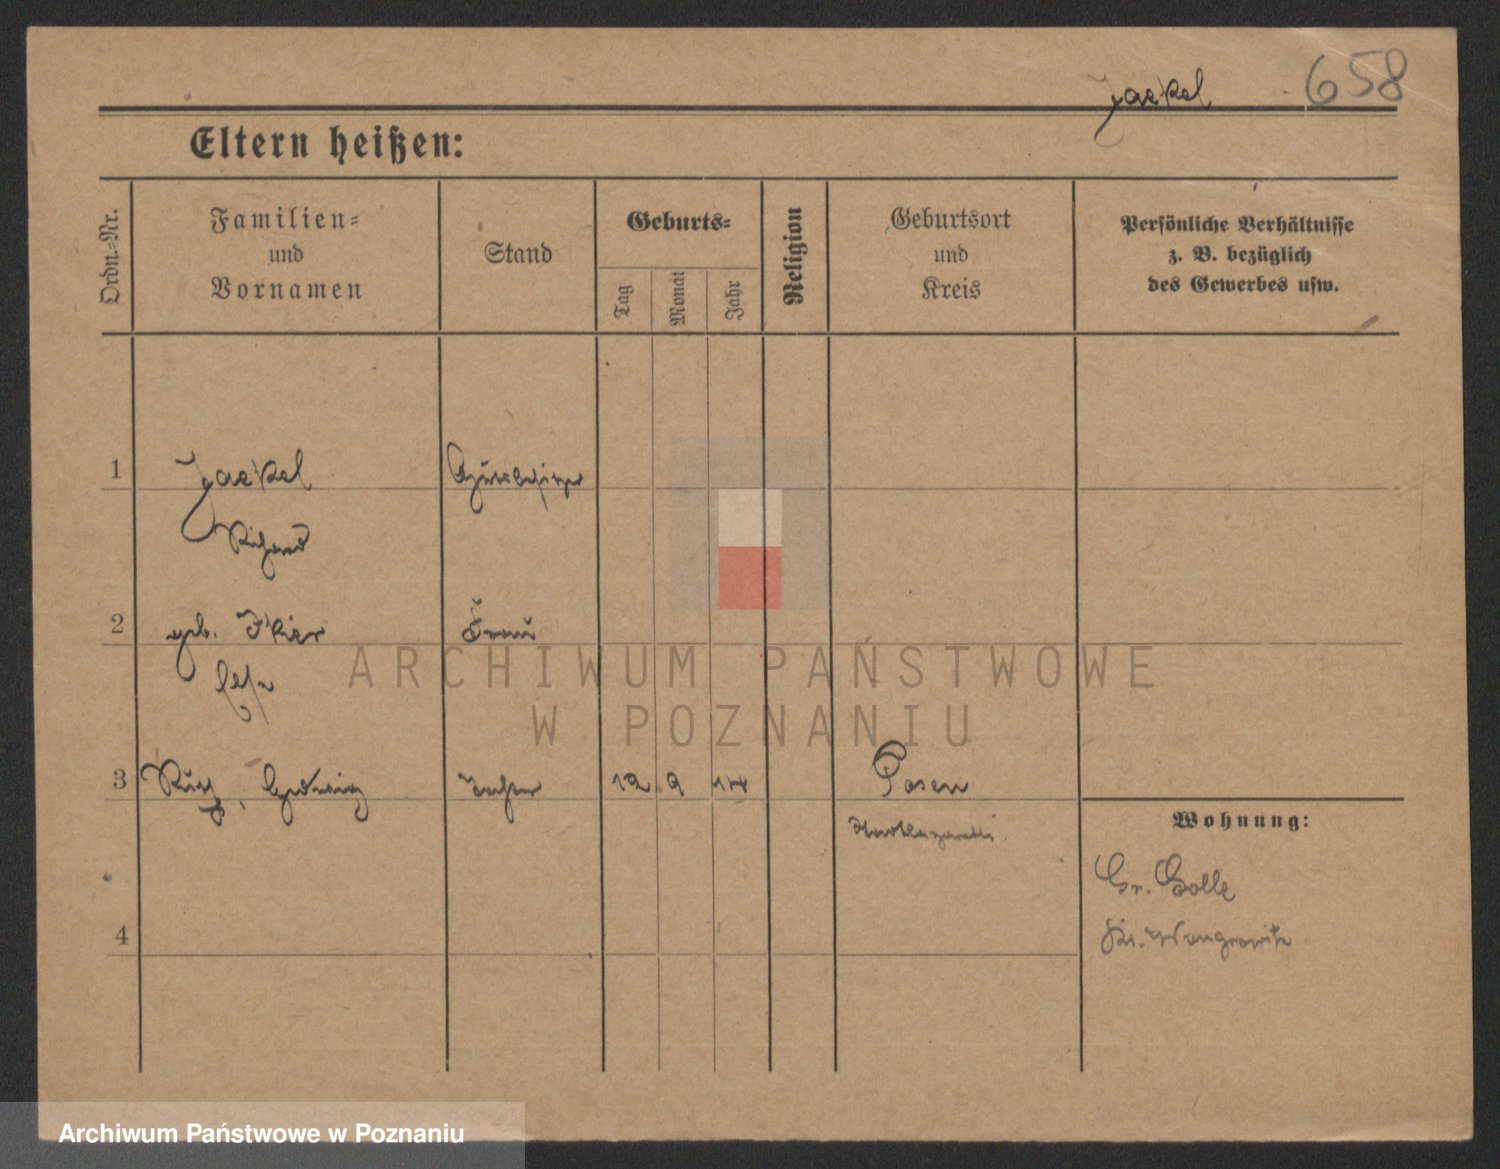 Jaekel 658
Eltern heißen:
Ordn.-Nr.
Familien-
und
Vornamen
Stand
Geburts-
Tag
Monat
Jahr
Religion
Geburtsort
und
Kreis
Persönliche Verhältnisse
z. B. bezüglich
des Gewerbes usw.
1 Jaekel Gutsbesitzer
Richard
2 geb. Frau
3 Ruth, Hedwig Tochter 12 9 14 Posen
Wohnung:
Gr. Golle
4
Kr. Wongrowitz
ARCHIWUM PAŃSTWOWE
W POZNANIU
Archiwum Państwowe w Poznaniu